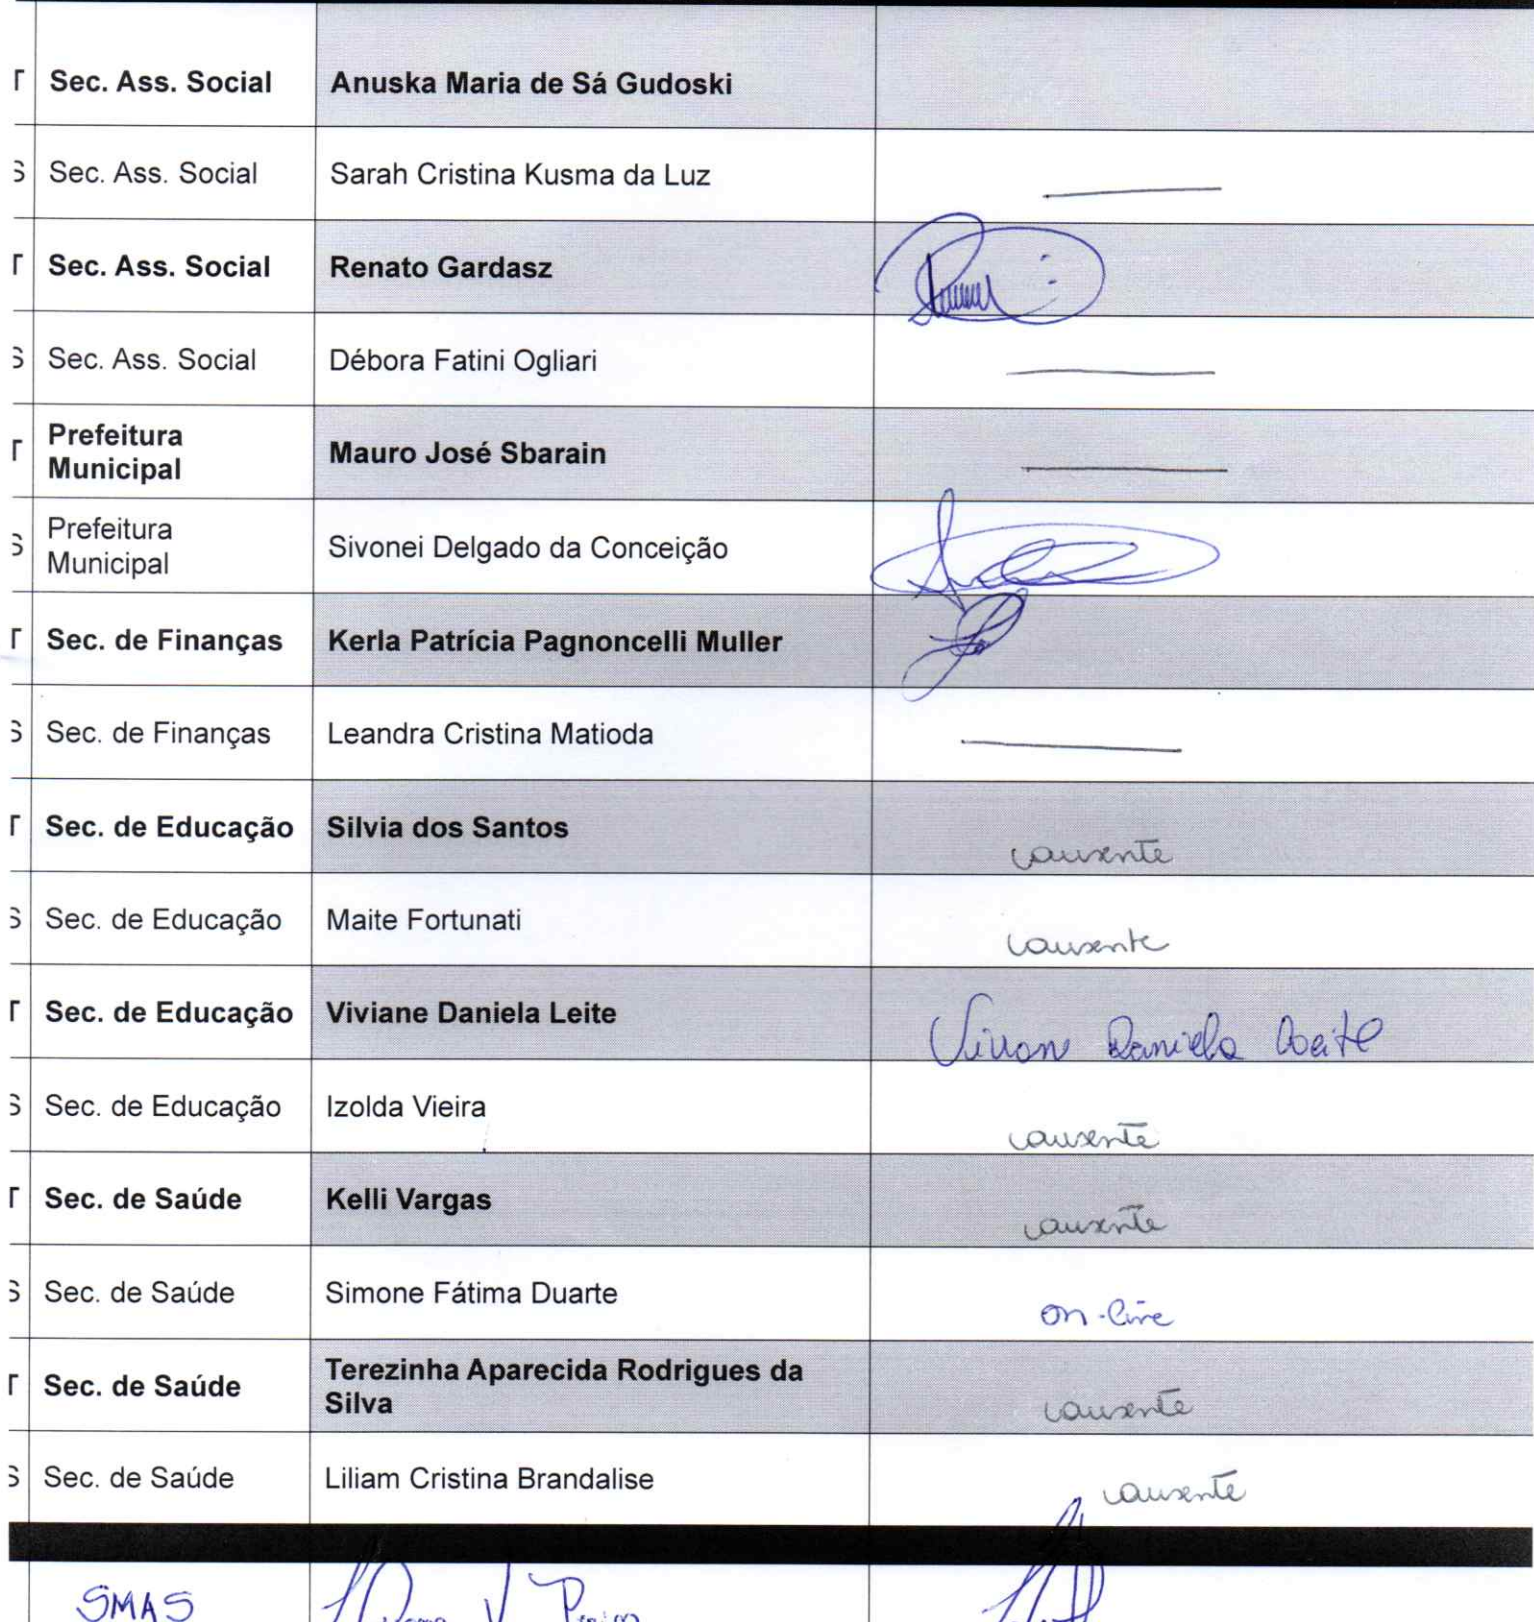 T Sec. Ass. Social Anuska Maria de Sá Gudoski
S Sec. Ass. Social Sarah Cristina Kusma da Luz
T Sec. Ass. Social Renato Gardasz
S Sec. Ass. Social Débora Fatini Ogliari
T Prefeitura
Municipal Mauro José Sbarain
S Prefeitura
Municipal Sivonei Delgado da Conceição
T Sec. de Finanças Kerla Patrícia Pagnoncelli Muller
S Sec. de Finanças Leandra Cristina Matioda
T Sec. de Educação Silvia dos Santos ausente
S Sec. de Educação Maite Fortunati ausente
T Sec. de Educação Viviane Daniela Leite Daniela Leite
S Sec. de Educação Izolda Vieira ausente
T Sec. de Saúde Kelli Vargas ausente
S Sec. de Saúde Simone Fátima Duarte on-line
T Sec. de Saúde Terezinha Aparecida Rodrigues da
Silva ausente
S Sec. de Saúde Liliam Cristina Brandalise ausente
SMAS